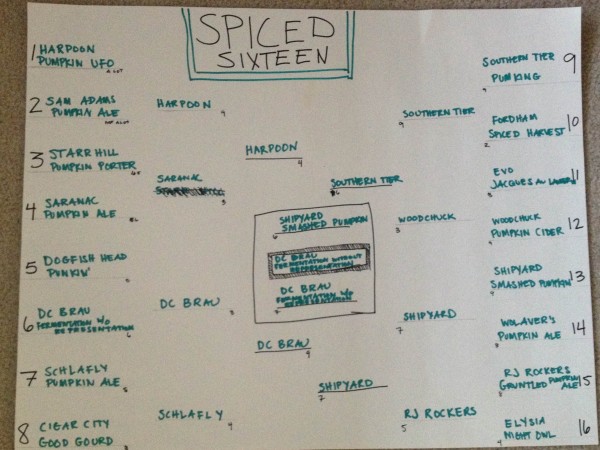 SPICED
SIXTEEN
1 HARPOON
PUMPKIN UFO
2 SAM ADAMS
PUMPKIN ALE
3 STARR HILL
PUMPKIN PORTER
4 SARANAC
PUMPKIN ALE
5 DOGFISH HEAD
PUNKIN'
6 DC BRAU
FERMENTATION W/O
REPRESENTATION
7 SCHLAFLY
PUMPKIN ALE
8 CIGAR CITY
GOOD GOURD
HARPOON
SARANAC
DC BRAU
SCHLAFLY
HARPOON
4
DC BRAU
SHIPYARD
SMASHED PUMPKIN
DC BRAU
FERMENTATION WITHOUT
REPRESENTATION
DC BRAU
FERMENTATION W/O
REPRESENTATION
SOUTHERN TIER
SHIPYARD
7
SOUTHERN TIER
9
WOODCHUCK
3
SHIPYARD
7
RJ ROCKERS
5
SOUTHERN TIER 9
PUMKING
FORDHAM 10
SPICED HARVEST
EVO 11
JACQUES AU
WOODCHUCK 12
PUMPKIN CIDER
SHIPYARD 13
SMASHED PUMPKIN
WOLAVER'S 14
PUMPKIN ALE
RJ ROCKERS 15
GRUNTLED PUMPKIN
ALE
ELYSIA 16
NIGHT OWL